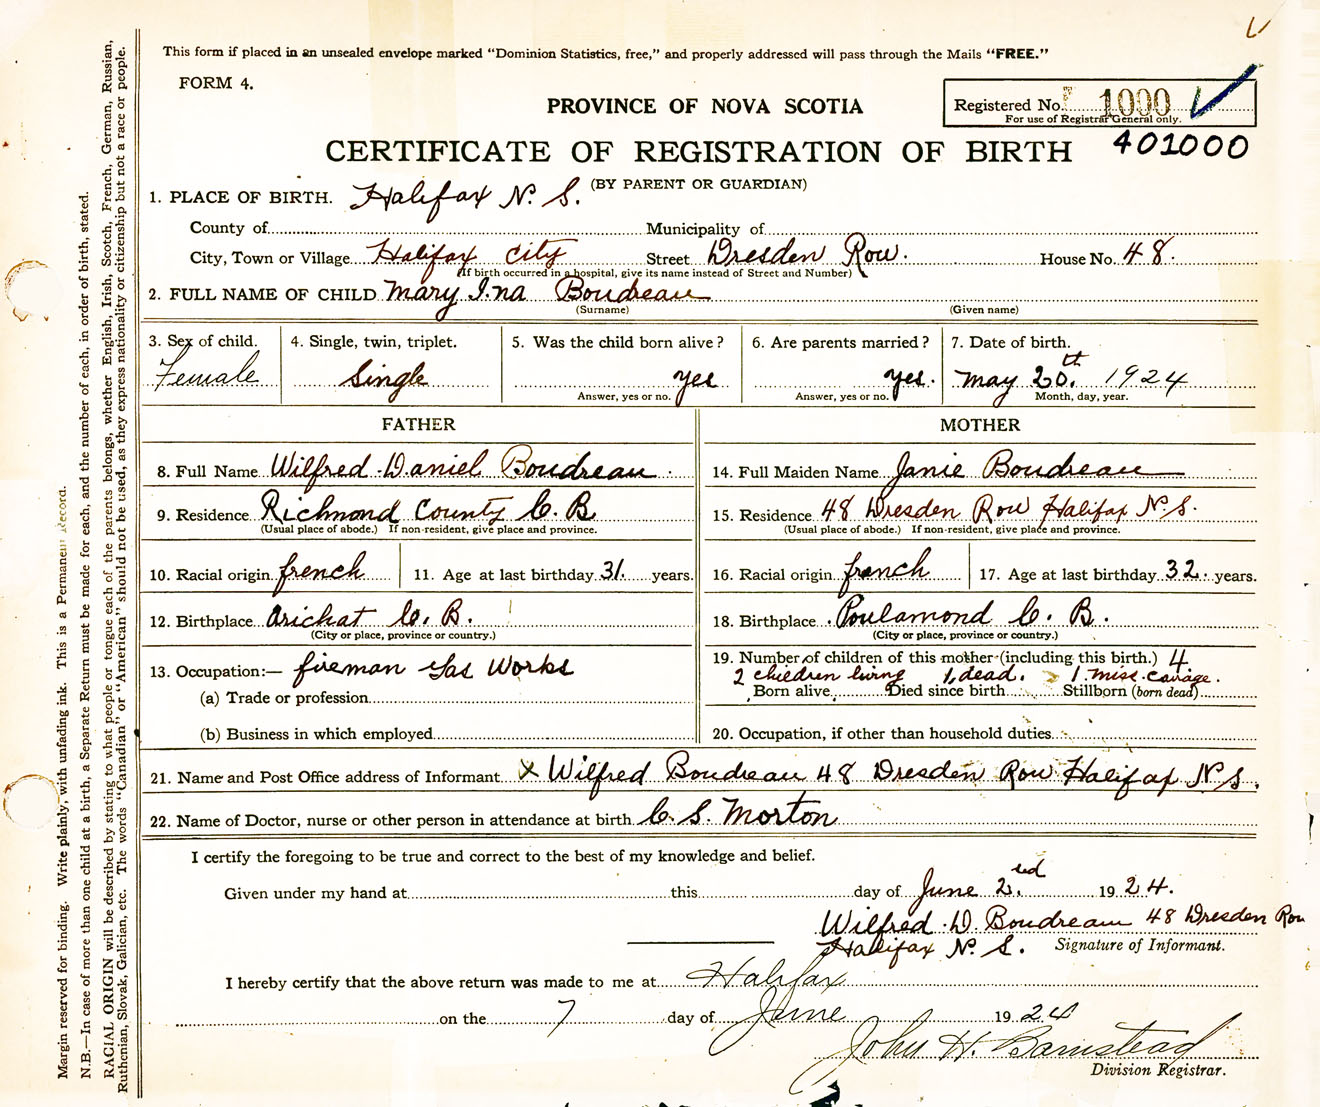 This form if placed in an unsealed envelope marked “Dominion Statistics, free,” and properly addressed will pass through the Mails “FREE.”
FORM 4.
PROVINCE OF NOVA SCOTIA
Registered No. 1000
For use of Registrar General only.
401000
CERTIFICATE OF REGISTRATION OF BIRTH
(BY PARENT OR GUARDIAN)
1. PLACE OF BIRTH. Halifax N. S.
County of Municipality of
City, Town or Village Halifax City Street Dresden Row. House No. 48.
(If birth occurred in a hospital, give its name instead of Street and Number)
2. FULL NAME OF CHILD Mary Ina Boudreau
(Surname) (Given name)
3. Sex of child. 4. Single, twin, triplet. 5. Was the child born alive? 6. Are parents married? 7. Date of birth.
Female Single yes yes. May 20th. 1924
Answer, yes or no. Answer, yes or no. Month, day, year.
FATHER MOTHER
8. Full Name Wilfred Daniel Boudreau 14. Full Maiden Name Janie Boudreau
9. Residence Richmond County C. B 15. Residence 48 Dresden Row Halifax N. S.
(Usual place of abode.) If non-resident, give place and province. (Usual place of abode.) If non-resident, give place and province.
10. Racial origin french 11. Age at last birthday 31. years. 16. Racial origin french 17. Age at last birthday 32. years.
12. Birthplace Arichat C. B. 18. Birthplace Poulamond C. B.
(City or place, province or country.) (City or place, province or country.)
13. Occupation:— fireman Gas Works 19. Number of children of this mother (including this birth.) 4.
2 children living 1, dead. 1 miss-carage.
(a) Trade or profession Born alive Died since birth Stillborn (born dead)
(b) Business in which employed 20. Occupation, if other than household duties
21. Name and Post Office address of Informant X Wilfred Boudreau 48 Dresden Row Halifax N. S.
22. Name of Doctor, nurse or other person in attendance at birth C. S. Morton
I certify the foregoing to be true and correct to the best of my knowledge and belief.
Given under my hand at this day of June 2. 1924.
Wilfred D. Boudreau 48 Dresden Row
Halifax N. S. Signature of Informant.
I hereby certify that the above return was made to me at Halifax
on the 7 day of June 1924
John H. Barnstead
Division Registrar.
Margin reserved for binding. Write plainly, with unfading ink. This is a Permanent Record.
N.B.—In case of more than one child at a birth, a Separate Return must be made for each, and the number of each, in order of birth, stated.
RACIAL ORIGIN will be described by stating to what people or tongue each of the parents belongs, whether English, Irish, Scotch, French, German, Russian,
Ruthenian, Slovak, Galician, etc. The words “Canadian” or “American” should not be used, as they express nationality or citizenship but not a race or people.